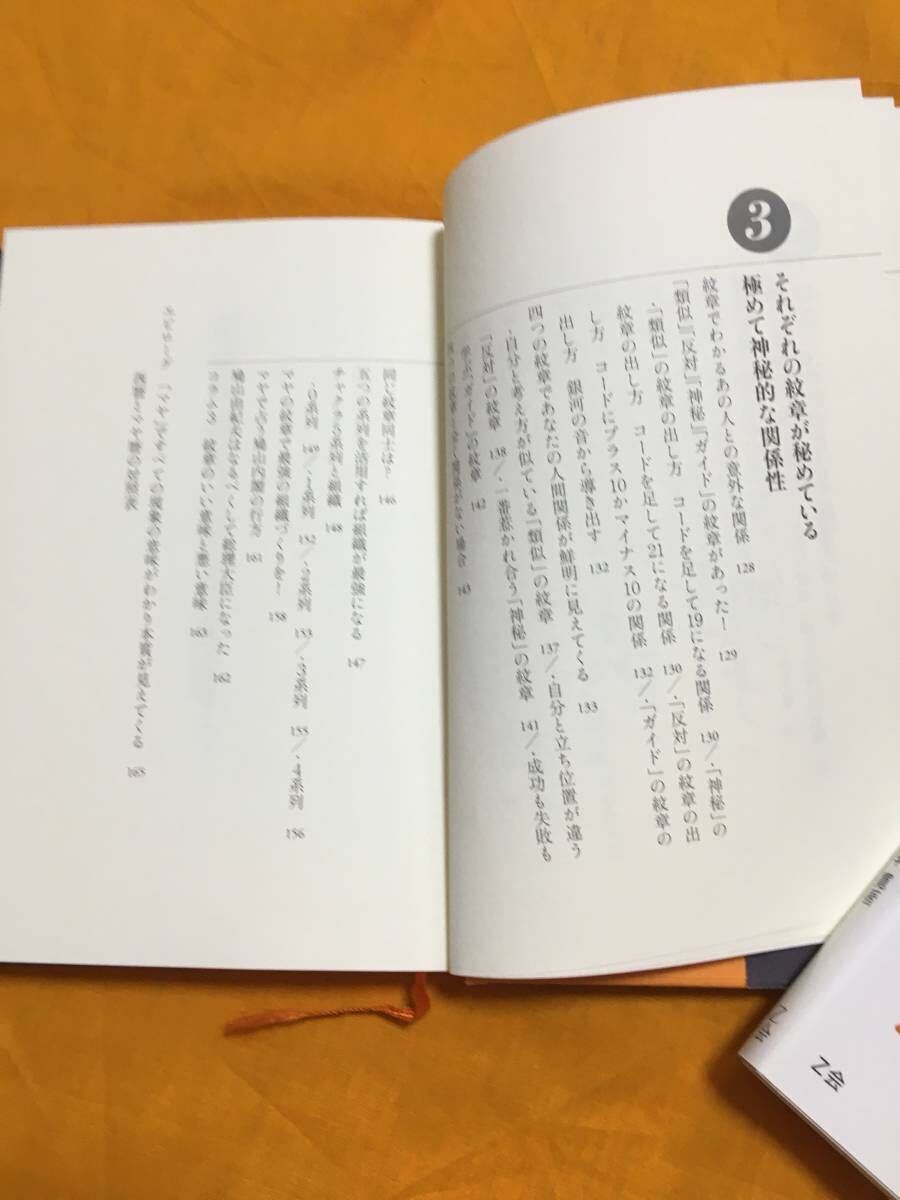 3
それぞれの紋章が秘めている
極めて神秘的な関係性
紋章でわかるあの人との意外な関係 128
「類似」「反対」「神秘」「ガイド」の紋章があった! 129
・「類似」の紋章の出し方 コードを足して19になる関係 130/・「神秘」の
紋章の出し方 コードを足して21になる関係 130/・「反対」の紋章の出
し方 コードにプラス10かマイナス10の関係 132/・「ガイド」の紋章の
出し方 銀河の音から導き出す 132
四つの紋章であなたの人間関係が鮮明に見えてくる 133
・自分と考え方が似ている「類似」の紋章 137/・自分と立ち位置が違う
「反対」の紋章 138/・一番惹かれ合う「神秘」の紋章 141/・成功も失敗も
学ぶ「ガイド」の紋章 142
関係がない場合 143
同じ紋章同士は? 146
五つの系列を活用すれば組織が最強になる 147
チャクラ5系列と組織 148
・0系列 149/・1系列 152/・2系列 153/・3系列 155/・4系列 156
マヤの紋章で最強の組織づくりを! 158
マヤで占う鳩山内閣の行方 161
鳩山由紀夫はなるべくして総理大臣になった 162
コラム3 紋章のいい意味と悪い意味 163
「マヤ」ですべての現象の意味がわかり本質が見えてくる
西暦とマヤ暦の対照表 165
Z会
Z会